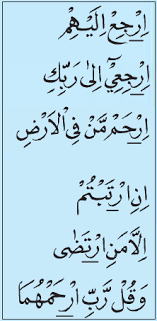 اِرْجِعْ اِلَيْهِمْ
اِرْجِعِيْٓ اِلٰى رَبِّكِ
اِرْحَمْ مَّنْ فِي الْاَرْضِ
اِنِ ارْتَبْتُمْ
اِلَّا مَنِ ارْتَضٰى
وَقُلْ رَّبِّ ارْحَمْهُمَا